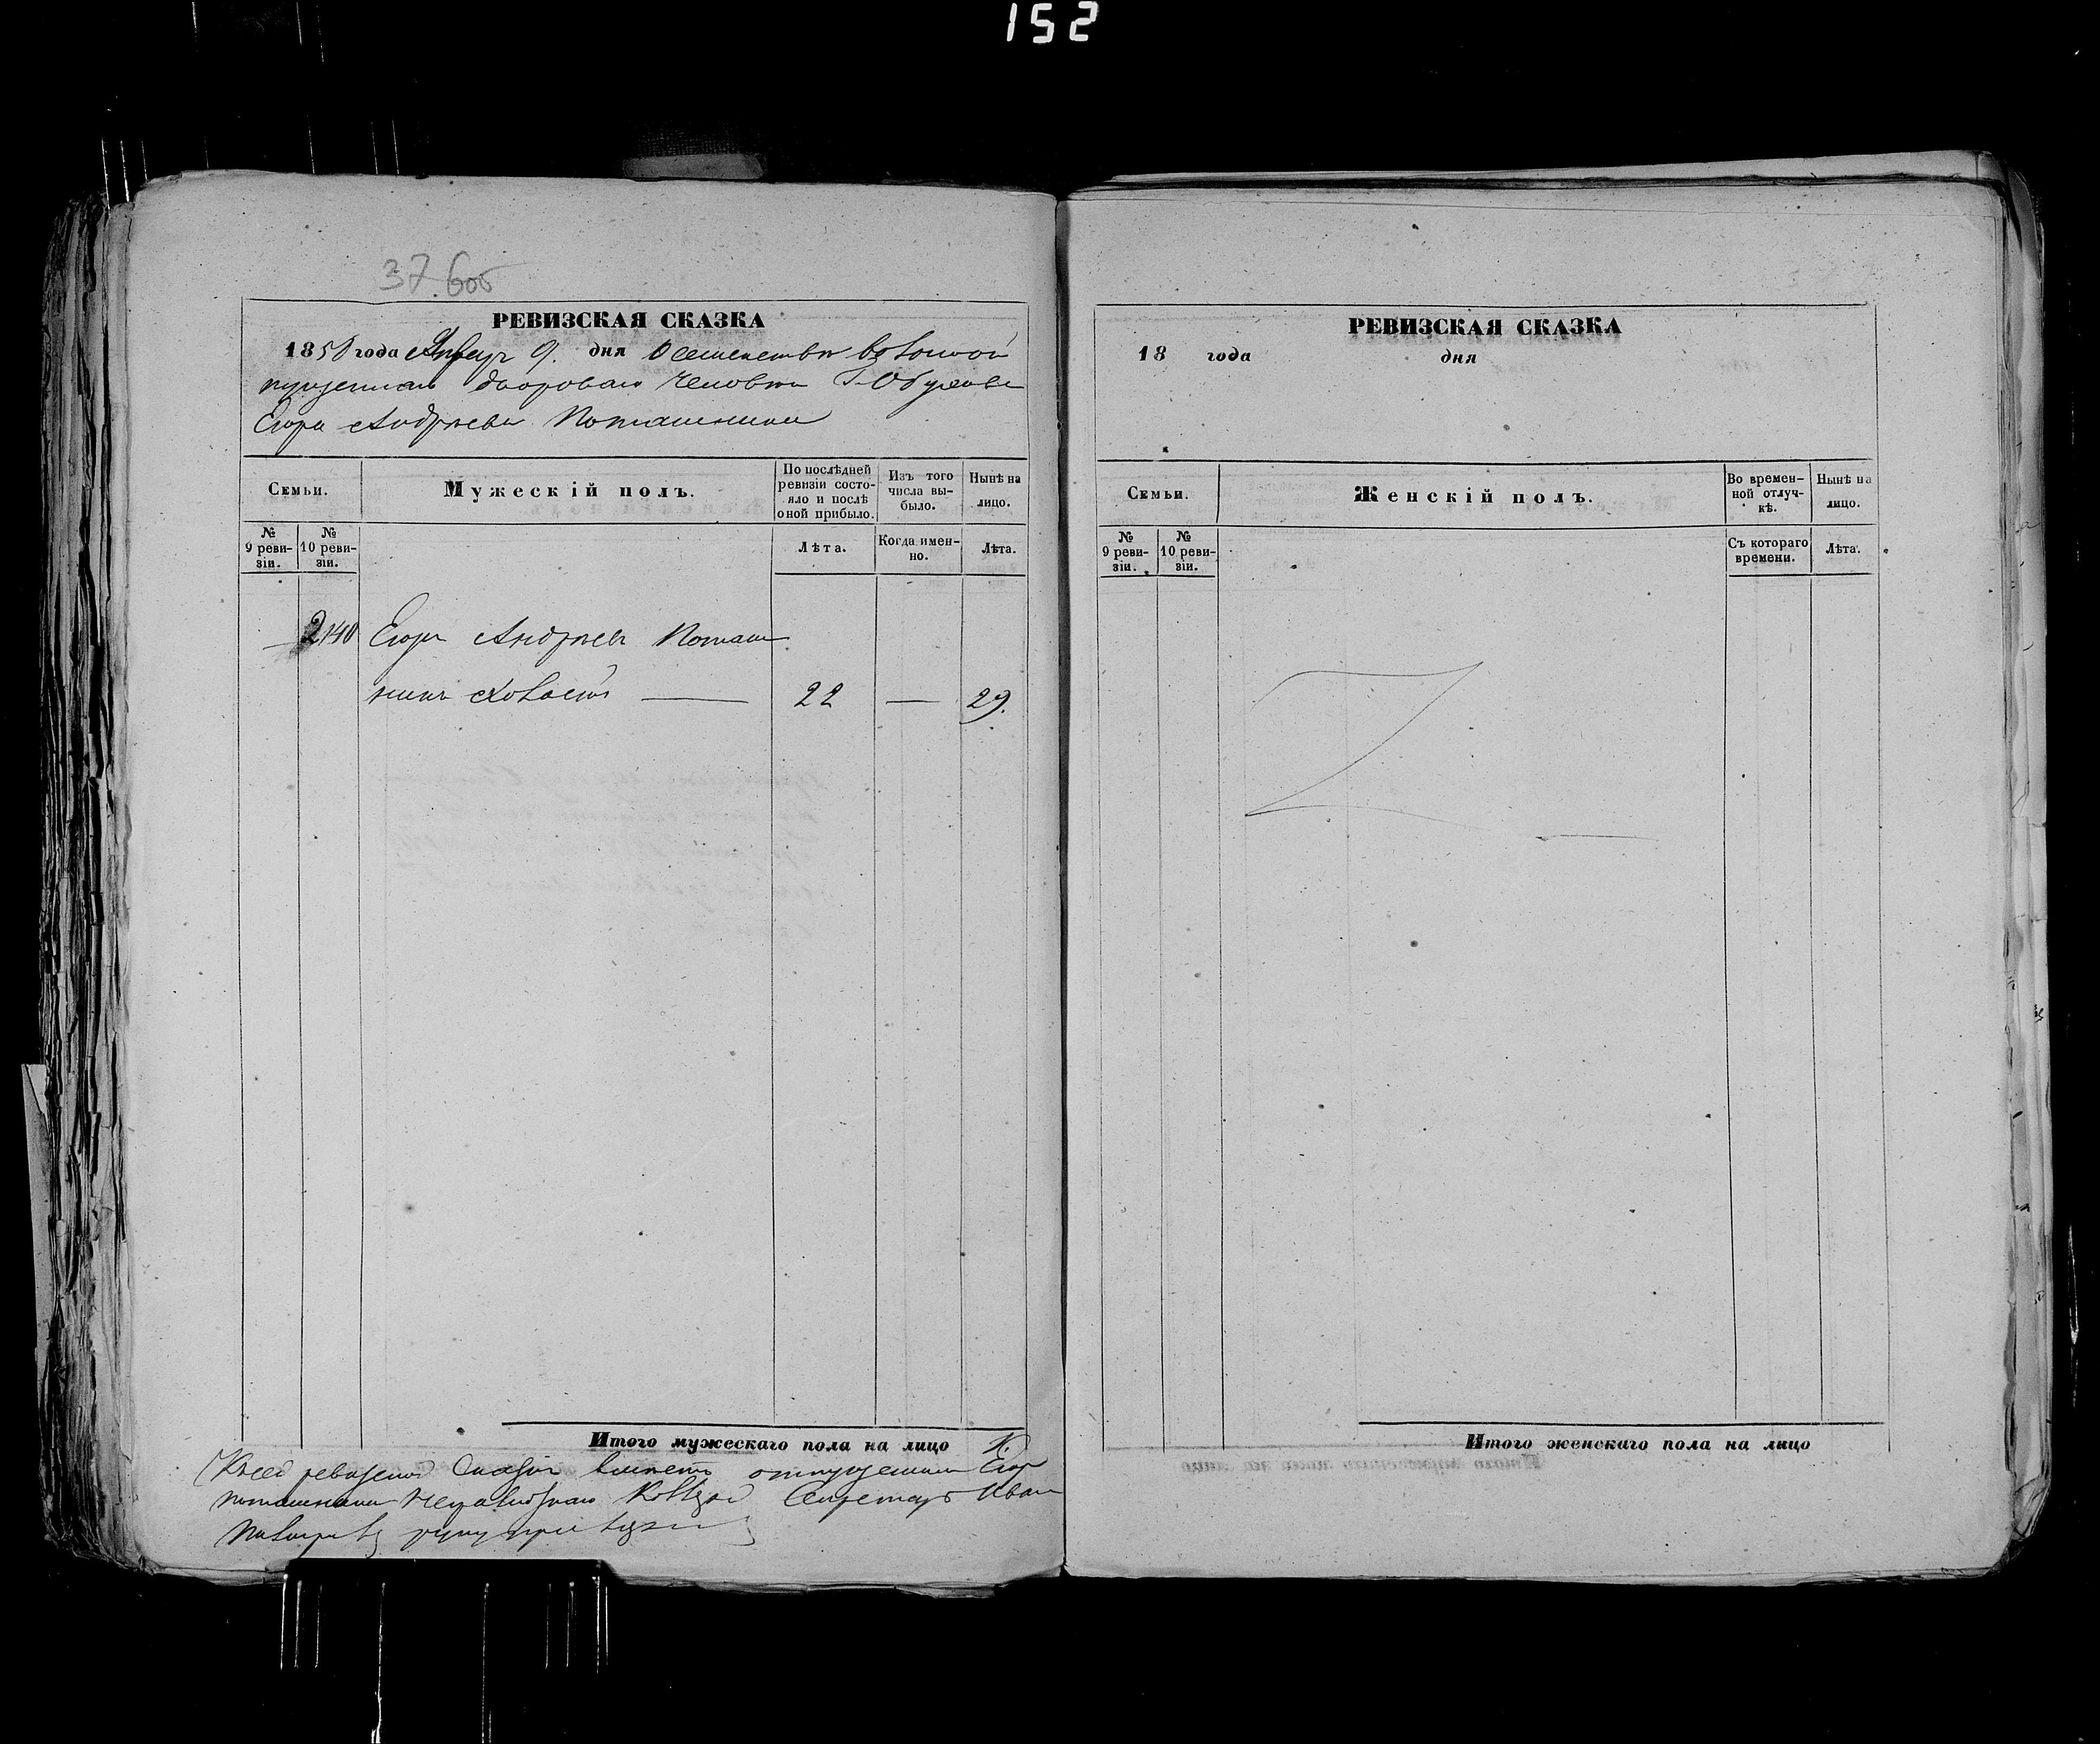 152
37. 600
РЕВИЗСКАЯ СКАЗКА
1858 года Января 9. дня О семействе
дворового человека Г.
Егора Андреева Поташника
Семьи.
Мужескій полъ.
По послѣдней ревизіи состояло и послѣ оной прибыло.
Изъ того числа выбыло.
Нынѣ на лицо.
№ 9 ревизіи.
№ 10 ревизіи.
Лѣта.
Когда именно.
Лѣта.
Егоръ Андреевъ Поташ
никъ холостъ — 22 — 29.
Итого мужескаго пола на лицо
Къ сей ревизской сказки вместо отпущеника Егора
Поташника неграмотнаго Секретарь Иван
руку приложил
РЕВИЗСКАЯ СКАЗКА
18 года дня
Семьи.
Женскій полъ.
Во временной отлучкѣ.
Нынѣ на лицо.
№ 9 ревизіи.
№ 10 ревизіи.
Съ котораго времени.
Лѣта.
Итого женскаго пола на лицо